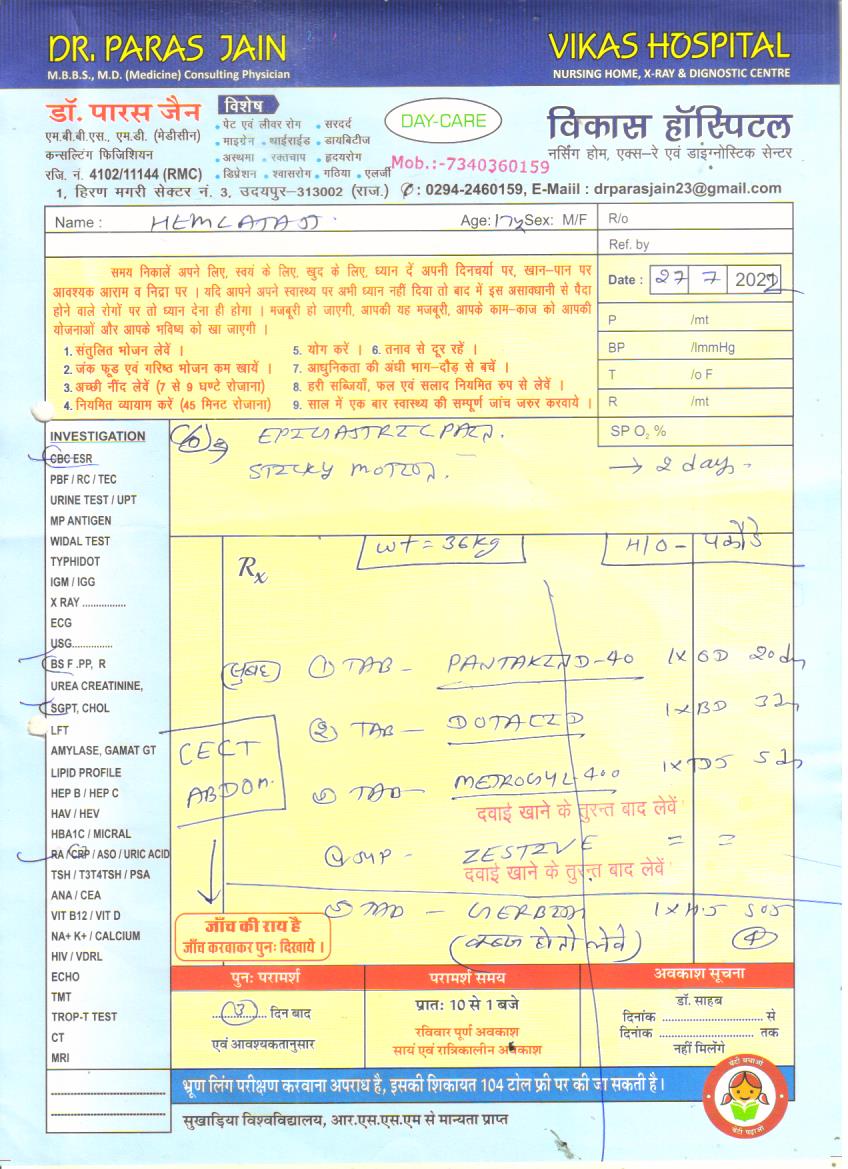 DR. PARAS JAIN
M.B.B.S., M.D. (Medicine) Consulting Physician
VIKAS HOSPITAL
NURSING HOME, X-RAY & DIGNOSTIC CENTRE
डॉ. पारस जैन
एम.बी.बी.एस., एम.डी. (मेडीसीन)
कन्सल्टिंग फिजिशियन
रजि. नं. 4102/11144 (RMC)
विशेष
• पेट एवं लीवर रोग • सरदर्द
• माइग्रेन • थाईराईड • डायबिटीज
• अस्थमा • रक्तचाप • हृदयरोग
• डिप्रेशन • श्वासरोग • गठिया • एलर्जी
DAY-CARE
Mob.:-7340360159
विकास हॉस्पिटल
नर्सिंग होम, एक्स-रे एवं डाइग्नोस्टिक सेन्टर
1, हिरण मगरी सेक्टर नं. 3, उदयपुर-313002 (राज.) ✆: 0294-2460159, E-Maiil : drparasjain23@gmail.com
Name : Age: 17y Sex: M/F R/o
Ref. by
समय निकालें अपने लिए, स्वयं के लिए, खुद के लिए, ध्यान दें अपनी दिनचर्या पर, खान-पान पर
आवश्यक आराम व निद्रा पर । यदि आपने अपने स्वास्थ्य पर अभी ध्यान नहीं दिया तो बाद में इस असावधानी से पैदा
होने वाले रोगों पर तो ध्यान देना ही होगा । मजबूरी हो जाएगी, आपकी यह मजबूरी, आपके काम-काज को आपकी
योजनाओं और आपके भविष्य को खा जाएगी ।
1. संतुलित भोजन लेवें । 5. योग करें । 6. तनाव से दूर रहें ।
2. जंक फूड एवं गरिष्ठ भोजन कम खायें । 7. आधुनिकता की अंधी भाग-दौड़ से बचें ।
3. अच्छी नींद लेवें (7 से 9 घण्टे रोजाना) 8. हरी सब्जियाँ, फल एवं सलाद नियमित रुप से लेवें ।
4. नियमित व्यायाम करें (45 मिनट रोजाना) 9. साल में एक बार स्वास्थ्य की सम्पूर्ण जांच जरुर करवाये ।
Date : 27 7 202
P /mt
BP /ImmHg
T /o F
R /mt
SP O₂ %
INVESTIGATION
CBC ESR
PBF / RC / TEC
URINE TEST / UPT
MP ANTIGEN
WIDAL TEST
TYPHIDOT
IGM / IGG
X RAY ................
ECG
USG...............
BS F .PP, R
UREA CREATININE,
SGPT, CHOL
LFT
AMYLASE, GAMAT GT
LIPID PROFILE
HEP B / HEP C
HAV / HEV
HBA1C / MICRAL
RA / CRP / ASO / URIC ACID
TSH / T3T4TSH / PSA
ANA / CEA
VIT B12 / VIT D
NA+ K+ / CALCIUM
HIV / VDRL
ECHO
TMT
TROP-T TEST
CT
MRI
C/o EPIGASTRIC PAIN.
STICKY MOTION. → 2 days
Rx
WT = 36kg
H/O - पकौडे
सुबह
① TAB - PANTAKIND-40 1 X OD 20 day
② TAB - DOTACID 1 X BD 3 day
③ TAB - METROGYL 400 1 X TDS 5 day
दवाई खाने के तुरन्त बाद लेवें
④ SYP - ZESTIVE = =
दवाई खाने के तुरन्त बाद लेवें
⑤ TAB - 1 X HS SOS
(कब्ज हो तो लेवें) ④
CECT
ABDOM.
जाँच की राय है
जाँच करवाकर पुनः दिखाये ।
पुनः परामर्श
3 दिन बाद
एवं आवश्यकतानुसार
परामर्श समय
प्रातः 10 से 1 बजे
रविवार पूर्ण अवकाश
सायं एवं रात्रिकालीन अवकाश
अवकाश सूचना
डॉ. साहब
दिनांक ............................ से
दिनांक ............................ तक
नहीं मिलेंगे
भ्रूण लिंग परीक्षण करवाना अपराध है, इसकी शिकायत 104 टोल फ्री पर की जा सकती है ।
सुखाड़िया विश्वविद्यालय, आर.एस.एस.एम से मान्यता प्राप्त
बेटी बचाओ
बेटी पढ़ाओ